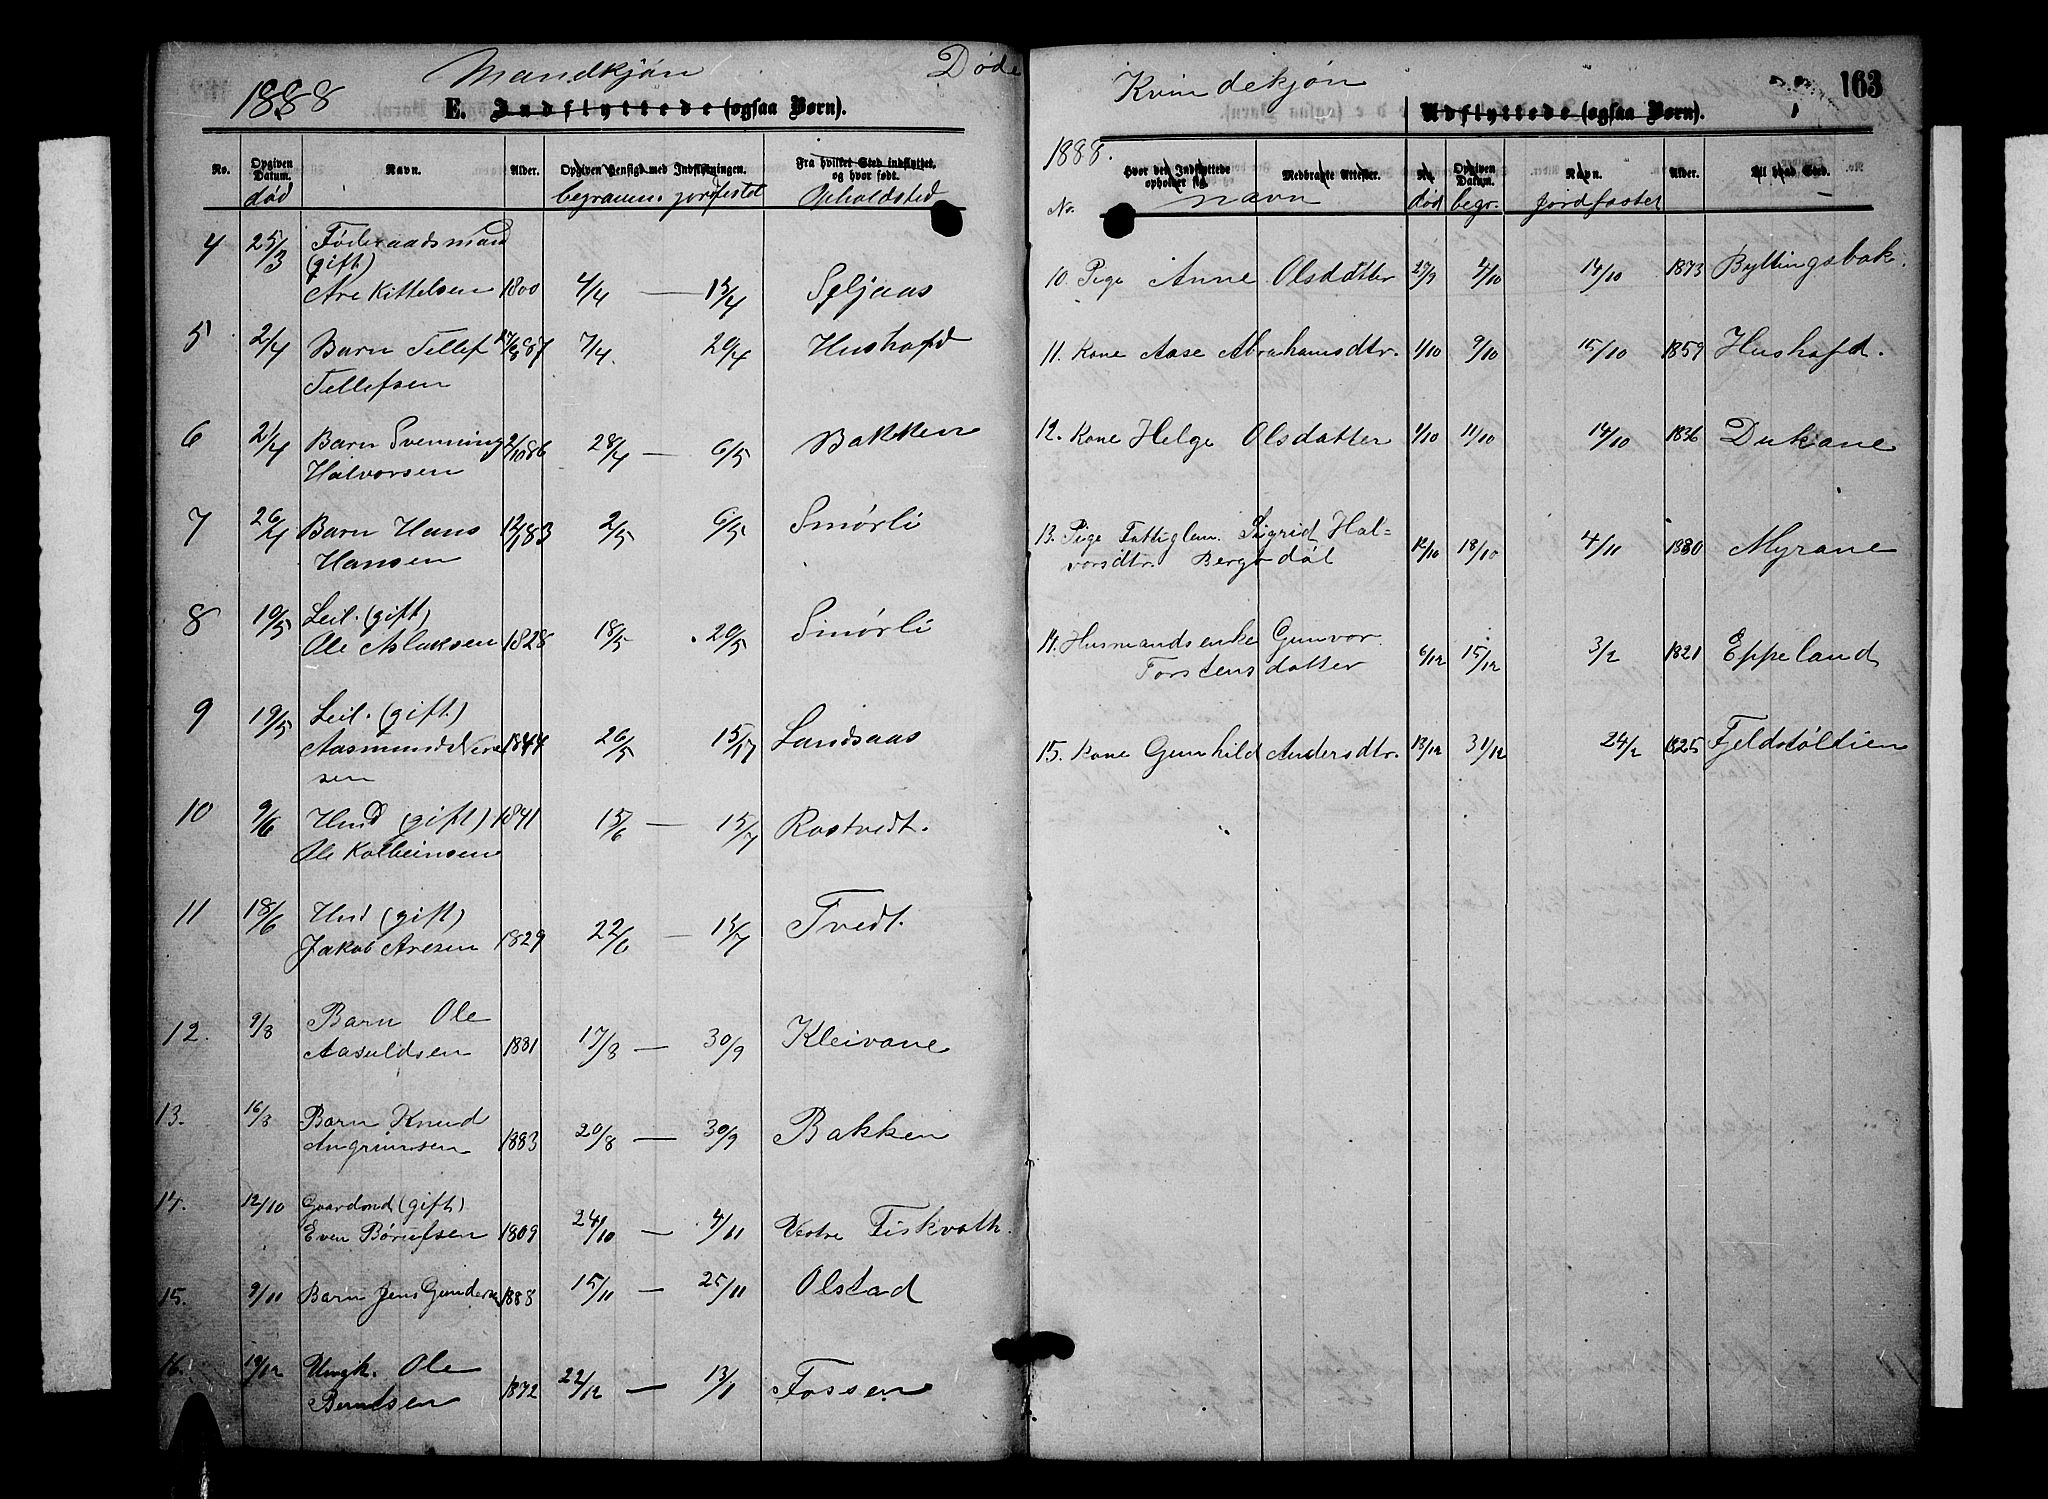 Mandkjøn
Døde
1888
E. Indflyttede (ogsaa Børn).
No.
Opgiven Datum.
Navn.
Alder.
Opgiven Hensigt med Indflytningen.
Fra hvilket Sted indflyttet, og hvor født.
død
begraven.
jordfestet
Opholdsted
4 25/3 Føderaadsmand
(gift)
Are Kittelsen 1800 4/4 — 15/4 Seljaas
5 2/4 Barn Tellef 87 7/4. 29/4 Hushofd
Tellefsen
6 21/4 Barn Svenning 2/10 86 28/4 — 6/5 Bakken
Halvorsen
7 26/4 Barn Hans 83 2/5 6/5 Smørli
Hansen
8 10/5 Leil. (gift)
Ole Aslaksen 1828 18/5 20/5 Smørli
9 19/5 Leil. (gift)
Aasmund 1844 26/5 15/7 Landsaas
sen
10 9/6 Husmd (gift) 1841 15/6 — 15/7 Rostvedt.
Ole Kolbeinsen
11 18/6 Husmd (gift)
Jakob Aresen 1829 22/6 — 15/7 Tvedt.
12. 9/8 Barn Ole
Aasuldsen 1881 17/8 — 30/9 Kleivane
13. 16/8 Barn Knud
Angrimsen 1883 20/8 — 30/9 Bakken
14. 12/10 Gaardmd (gift)
Even Børufsen 1809 24/10 — 4/11 Vestre Fiskvatn.
15. 9/11 Barn Jens Gundersen 1888 15/11 — 25/11 Olstad
16. 19/12 Ungk. Ole
Berntsen 1872 22/12 — 13/1 Fossen
Kvindekjøn
163
Udflyttede (ogsaa Børn).
1888.
Hvor den Indflyttede opholder sig.
Medbragte Attester.
No.
Opgiven Datum.
Navn.
Alder.
Til hvad Sted.
No.
No. Navn død begr. jordfæstet
10. Pige Anne Olsdatter 27/9 4/10 14/10 1873 Byttingsbak.
11. Kone Aase Abrahamsdtr. 1/10 9/10 15/10 1859 Hushofd.
12. Kone Helge Olsdatter 1/10 11/10 14/10 1836 Dukane
13. Pige Fattiglem. Sigrid Hal-
vorsdtr. Bergsdøl 12/10 18/10 4/11 1880 Myrane
14. Husmandsenke Gunvor
Torstensdatter 6/12 15/12 3/2 1821 Eppeland
15. Kone Gunhild Andersdtr. 18/12 31/12 24/2 1825 Fjeldstøllien